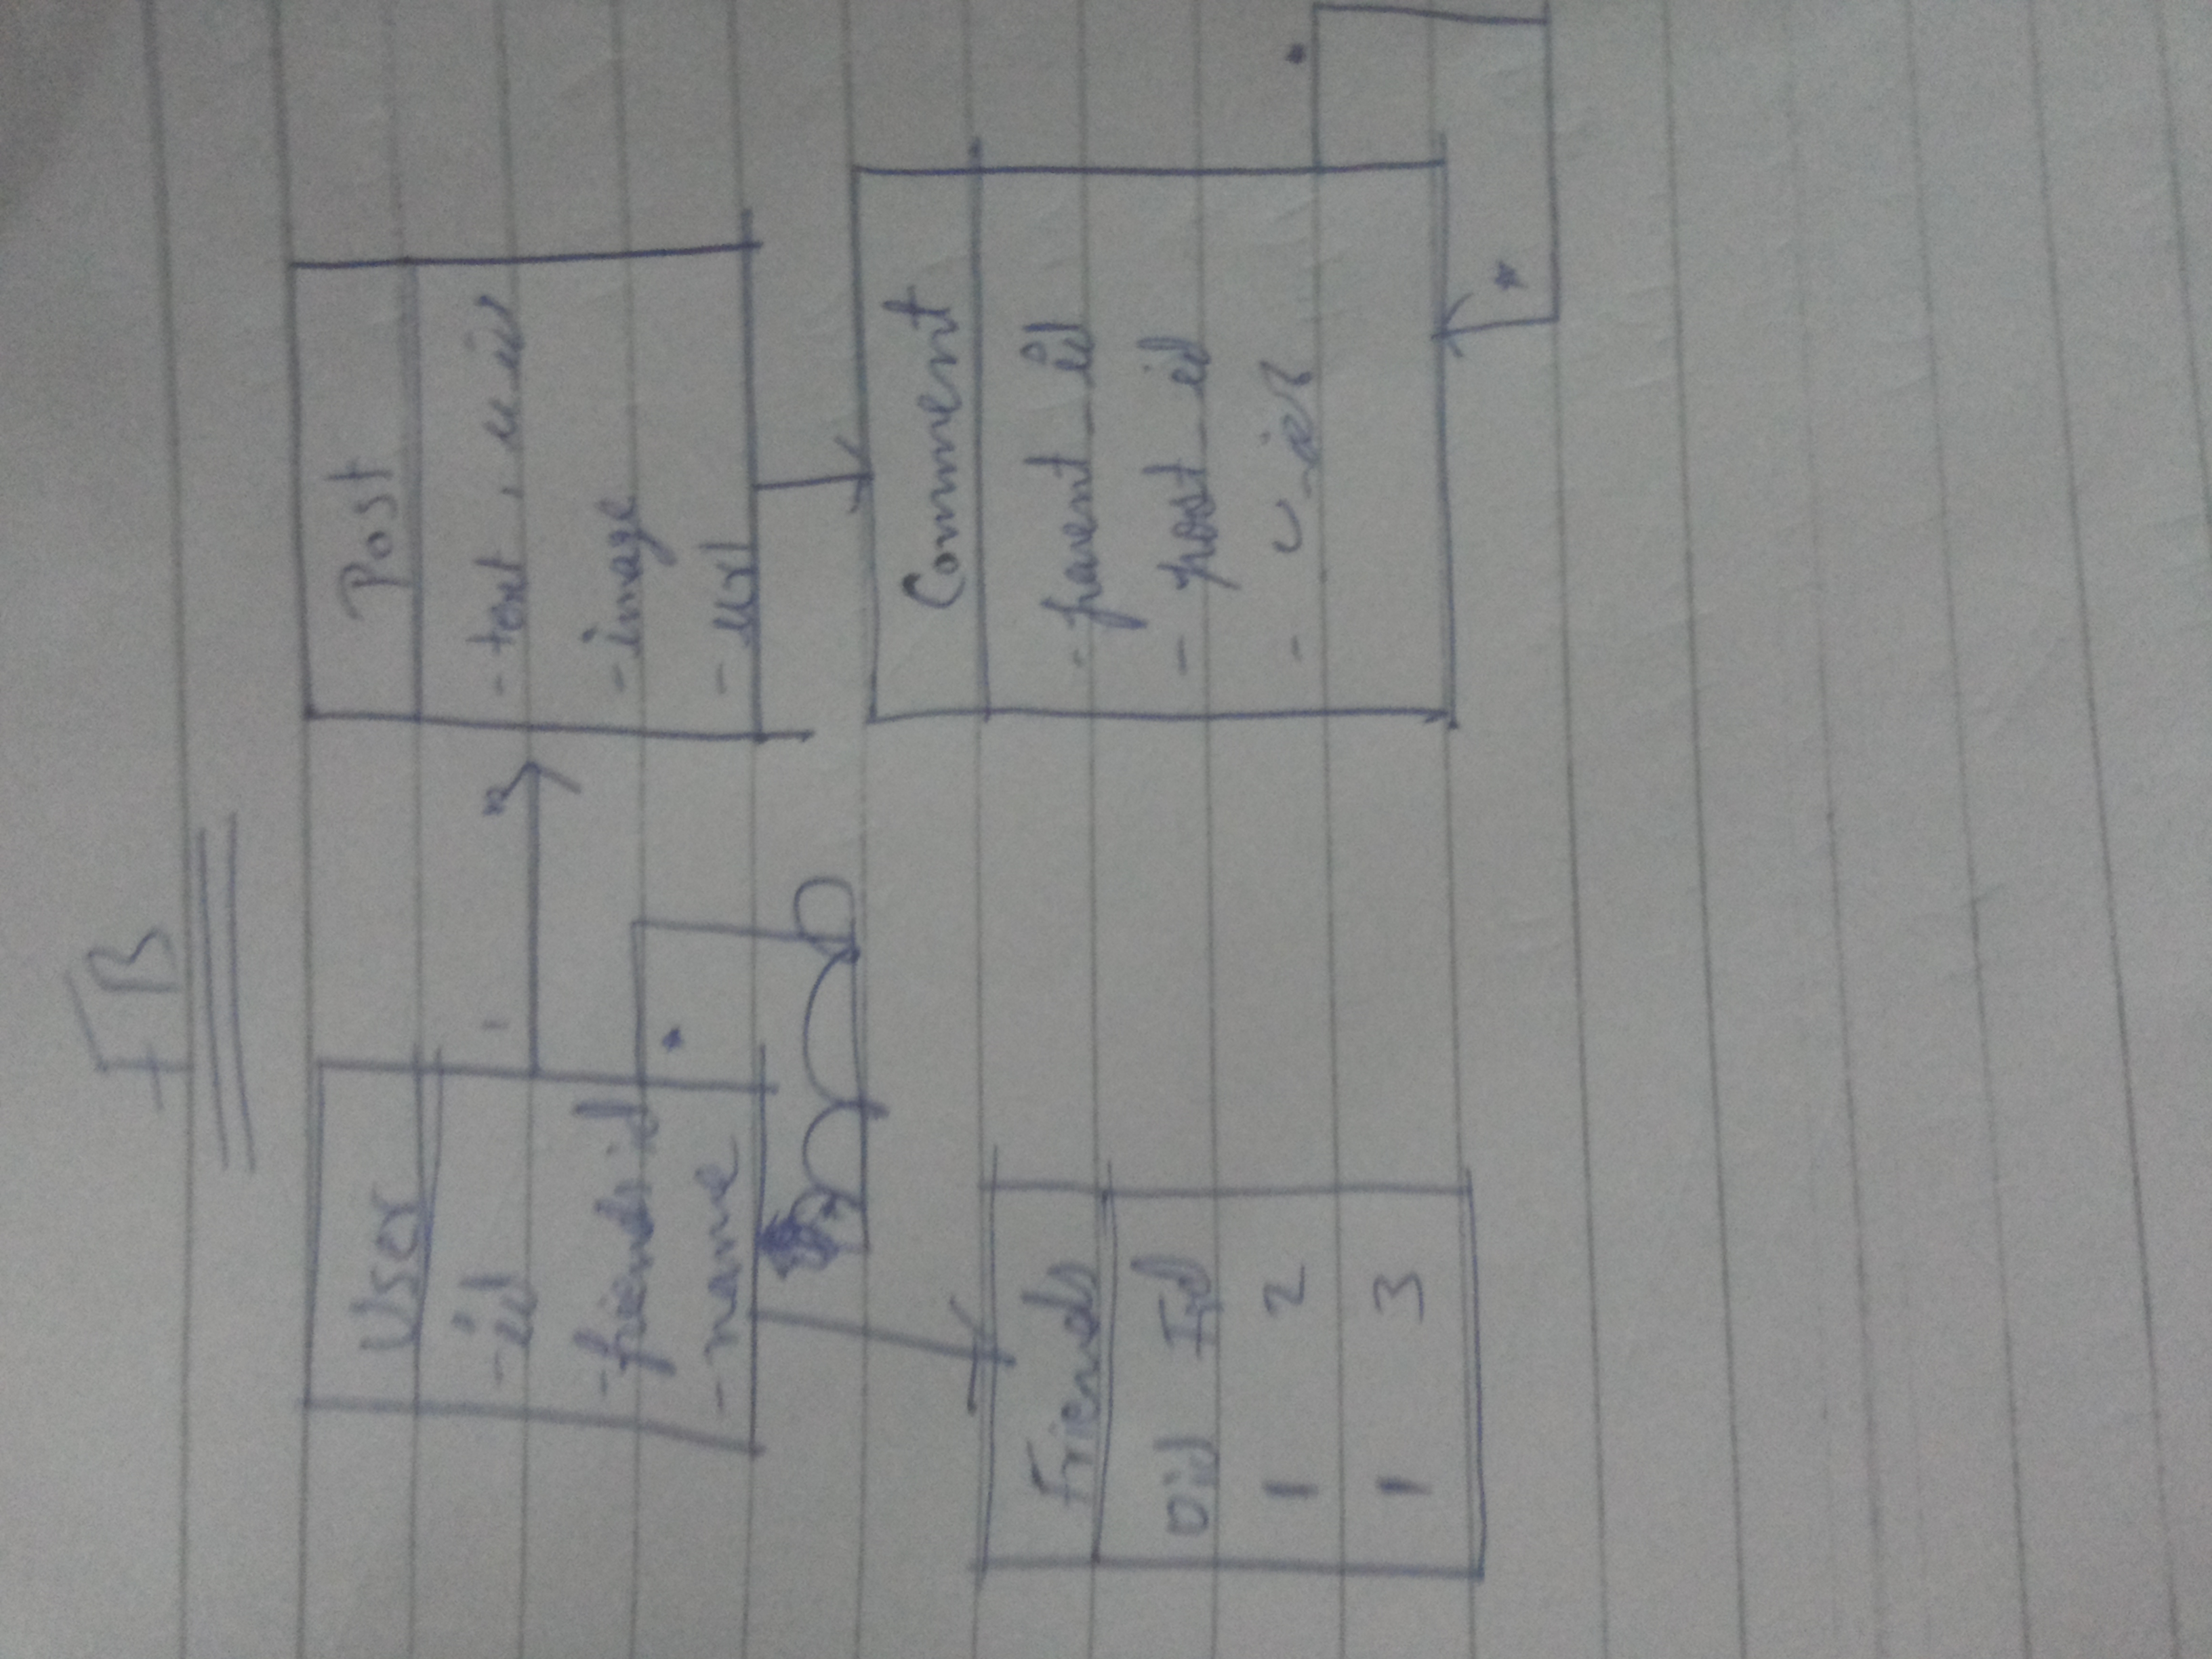 FB
User
- id
- friends id
- name
1
*
Post
- text, u_id
- image
- url
Friends
Oid Fid
1 2
1 3
Comment
- parent_id
- post_id
- u_id
*
*